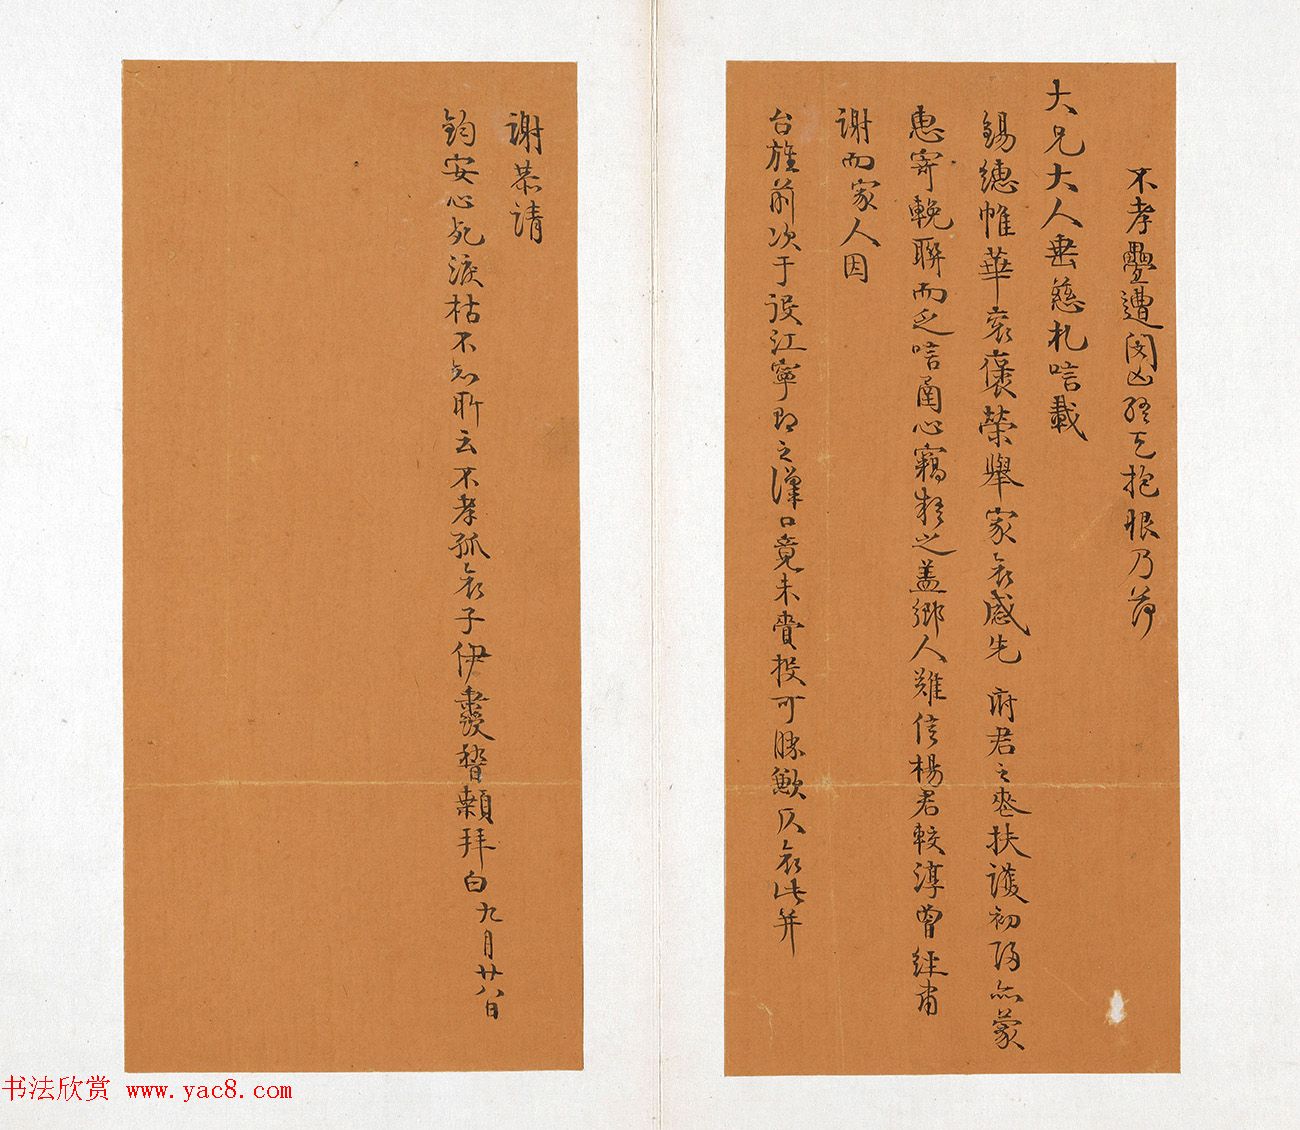 不孝疊遭閔凶終天抱恨乃荷
大兄大人垂慈札唁載
錫繐帷華衮褒榮舉家哀感先 府君之喪扶護初歸亦蒙
惠寄輓聯而乏唁函心竊疑之蓋鄉人難信楊君較淳曾經肅
謝而家人因
台旌前次于役江寧即之漢口竟未賫投可勝歉仄哀此并
謝恭請
鈞安心死淚枯不知所云不孝孤哀子伊 稽顙拜白 九月廿八日
书法欣赏 www.yac8.com